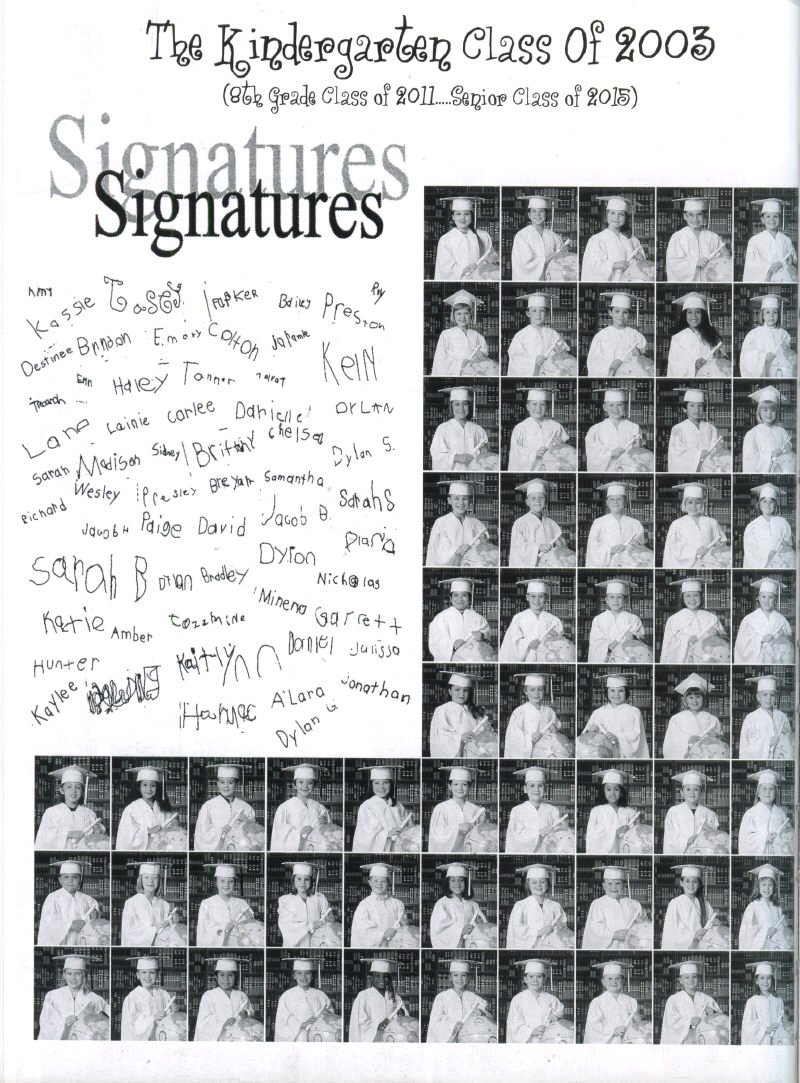 The Kindergarten Class Of 2003
(8th Grade Class of 2011.....Senior Class of 2015)
Signatures
Signatures
Amy Kassie Casey Parker Bailey Preston Ray
Destinee Brandon Emory Colton
Erin Haley Tanner
Lane Lainie Carlee Danielle DYLAN
Sarah Madison Sidney Brittany Chelsea Dylan S.
Richard Wesley Presley Samantha Sarah S
Jacob H Paige David Jacob B.
Sarah B Brian Bradley Dylan Nicholas
Katie Amber Garrett
Hunter Kaitlynn Daniel Julissa
Kaylee A'Lara Jonathan
Dylan G